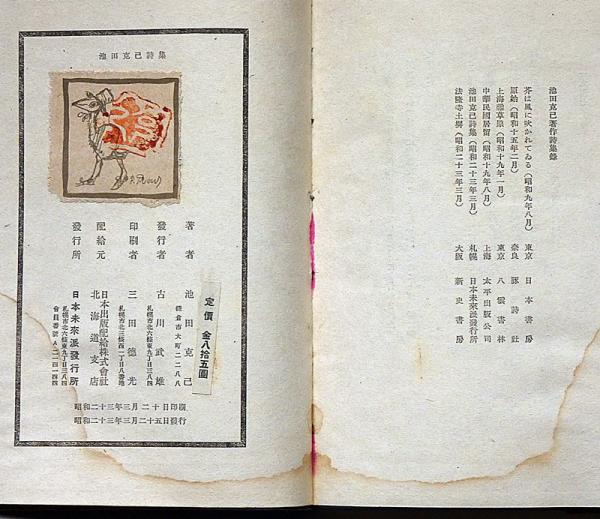 池田克己著作詩集錄
芥は風に吹かれてゐる（昭和九年八月） 東京 日本書房
原始（昭和十五年二月） 奈良 豚詩社
上海雜草原（昭和十九年一月） 東京 八雲書林
中華民國居留（昭和十九年八月） 上海 太平出版公司
池田克己詩集（昭和二十三年三月） 札幌 日本未來派發行所
法隆寺土塀（昭和二十三年三月） 大阪 新史書房
池田克己詩集
定價 金八拾五圓
著者 池田克己
鎌倉市大町二二八八
發行者 古川武雄
札幌市北六條東九丁目三八四
印刷者 三田德光
札幌市北三條西一丁目八番地
配給元 日本出版配給株式會社
北海道支店
發行所 日本未來派發行所
札幌市北六條東九丁目三八四
會員番號A二一四一四四
昭和二十三年三月二十日印刷
昭和二十三年三月二十五日發行